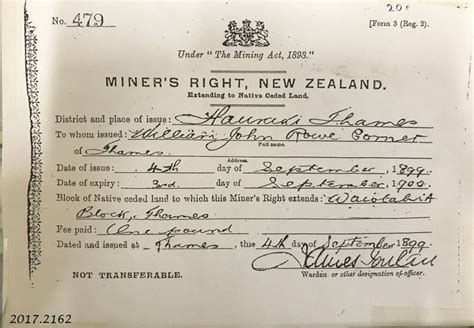 20c
No. 479
[Form 3 (Reg. 2).
Under "The Mining Act, 1898."
MINER'S RIGHT, NEW ZEALAND.
Extending to Native Ceded Land.
District and place of issue: Hauraki Thames
To whom issued: William John Rowe Corner
Full name.
of Thames
Address.
Date of issue: 4th day of September 1899
Date of expiry: 3rd day of September 1900.
Block of Native ceded land to which this Miner's Right extends:
Block, Thames
Fee paid: One pound
Dated and issued at Thames, this 4th day of September 1899
NOT TRANSFERABLE.
Warden or other designation of officer.
2017.2162